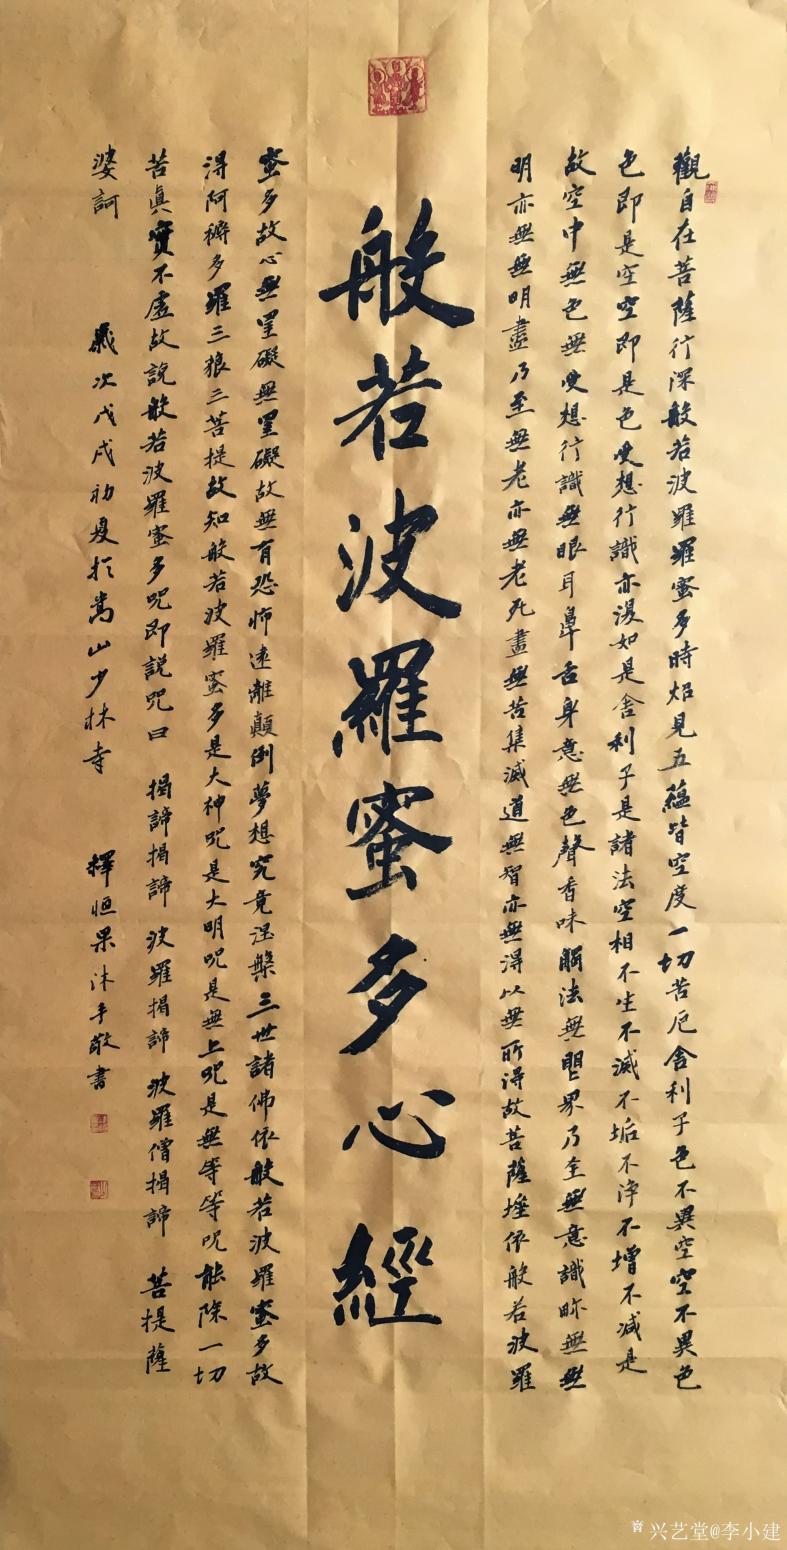 觀自在菩薩行深般若波羅羅蜜多時炤見五蘊皆空度一切苦厄舍利子色不異空空不異色
色即是空空即是色受想行識亦復如是舍利子是諸法空相不生不滅不垢不淨不增不減是
故空中無色無受想行識無眼耳鼻舌身意無色聲香味觸法無眼界乃至無意識界無無
明亦無無明盡乃至無老亦無老死盡無苦集滅道無智亦無得以無所得故菩薩埵依般若波羅
般若波羅蜜多心經
蜜多故心無罣礙無罣礙故無有恐怖遠離顛倒夢想究竟涅槃三世諸佛依般若波羅蜜多故
得阿耨多羅三狼三菩提故知般若波羅蜜多是大神咒是大明咒是無上咒是無等等咒能除一切
苦真實不虛故說般若波羅蜜多咒即說咒曰 揭諦揭諦 波羅揭諦 波羅僧揭諦 菩提薩
婆訶 歲次戊戌初夏於嵩山少林寺 釋恒果沐手敬書
兴艺堂@李小建